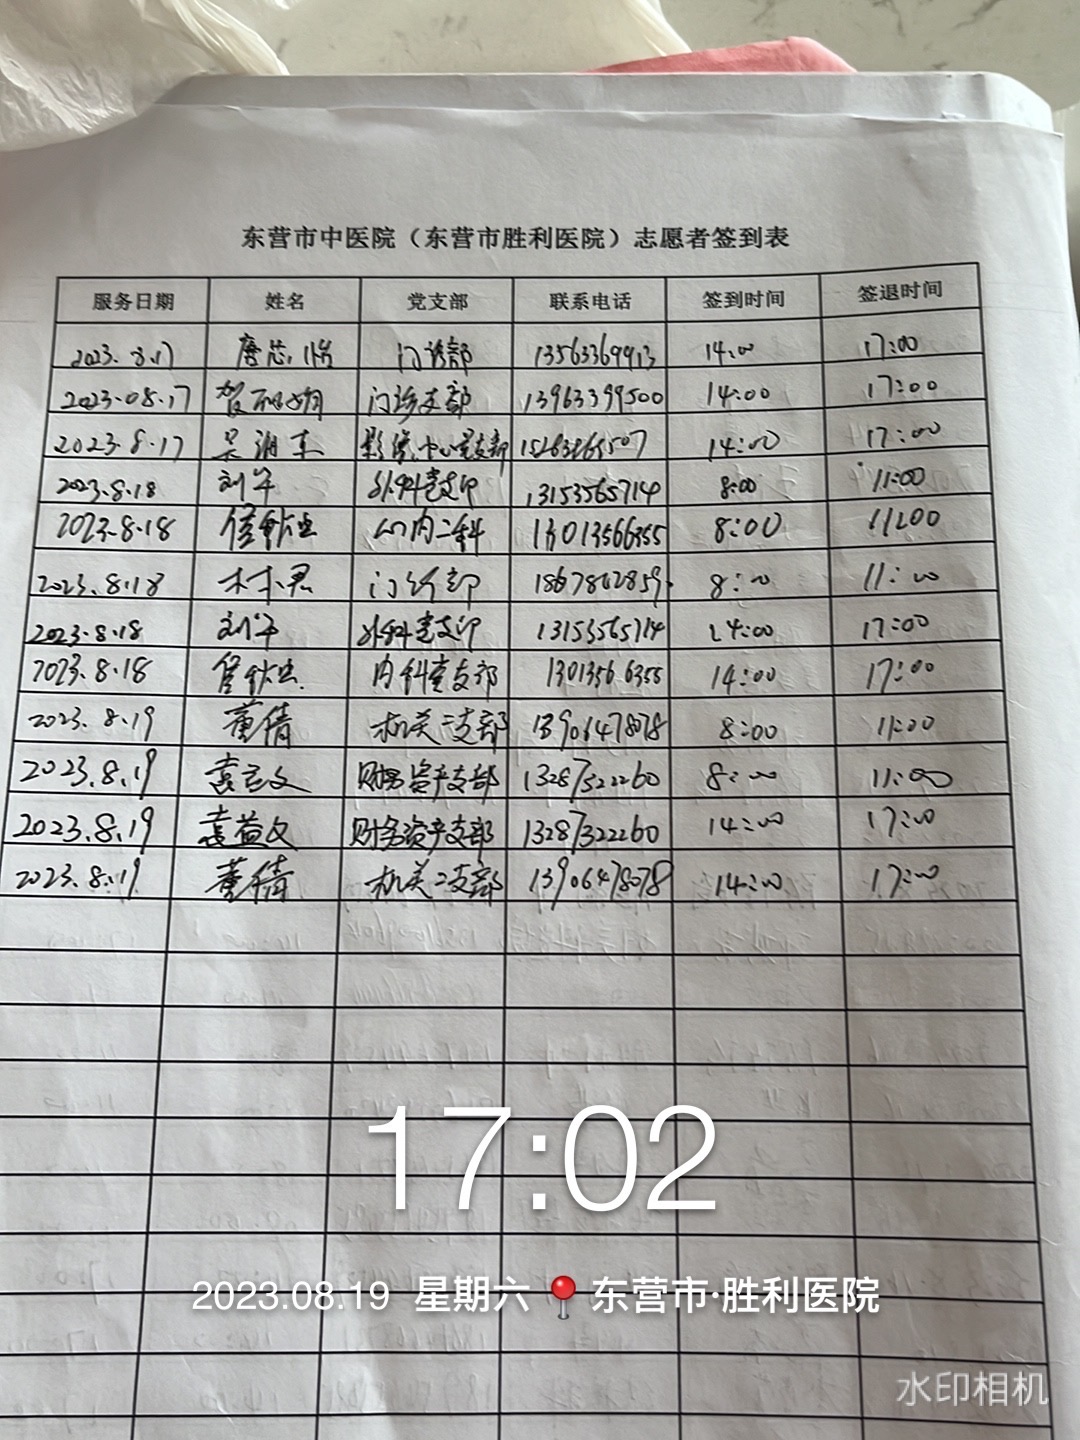 东营市中医院（东营市胜利医院）志愿者签到表
服务日期 姓名 党支部 联系电话 签到时间 签退时间
2023.8.17 唐芯怡 门诊部 13563369913 14:00 17:00
2023.08.17 贺 门诊支部 13963399500 14:00 17:00
2023.8.17 吴湘东 影像中心党支部 14:00 17:00
2023.8.18 刘军 外科党支部 13153565714 8:00 11:00
2023.8.18 内二科 13013566355 8:00 11:00
2023.8.18 林君 门诊部 8:00 11:00
2023.8.18 刘军 外科党支部 13153565714 14:00 17:00
2023.8.18 内科党支部 13013566355 14:00 17:00
2023.8.19 董倩 机关二支部 13906478078 8:00 11:00
2023.8.19 袁益文 财务资产支部 13287322260 8:00 11:00
2023.8.19 袁益文 财务资产支部 13287322260 14:00 17:00
2023.8.19 董倩 机关二支部 13906478078 14:00 17:00
17:02
2023.08.19 星期六 东营市·胜利医院
水印相机